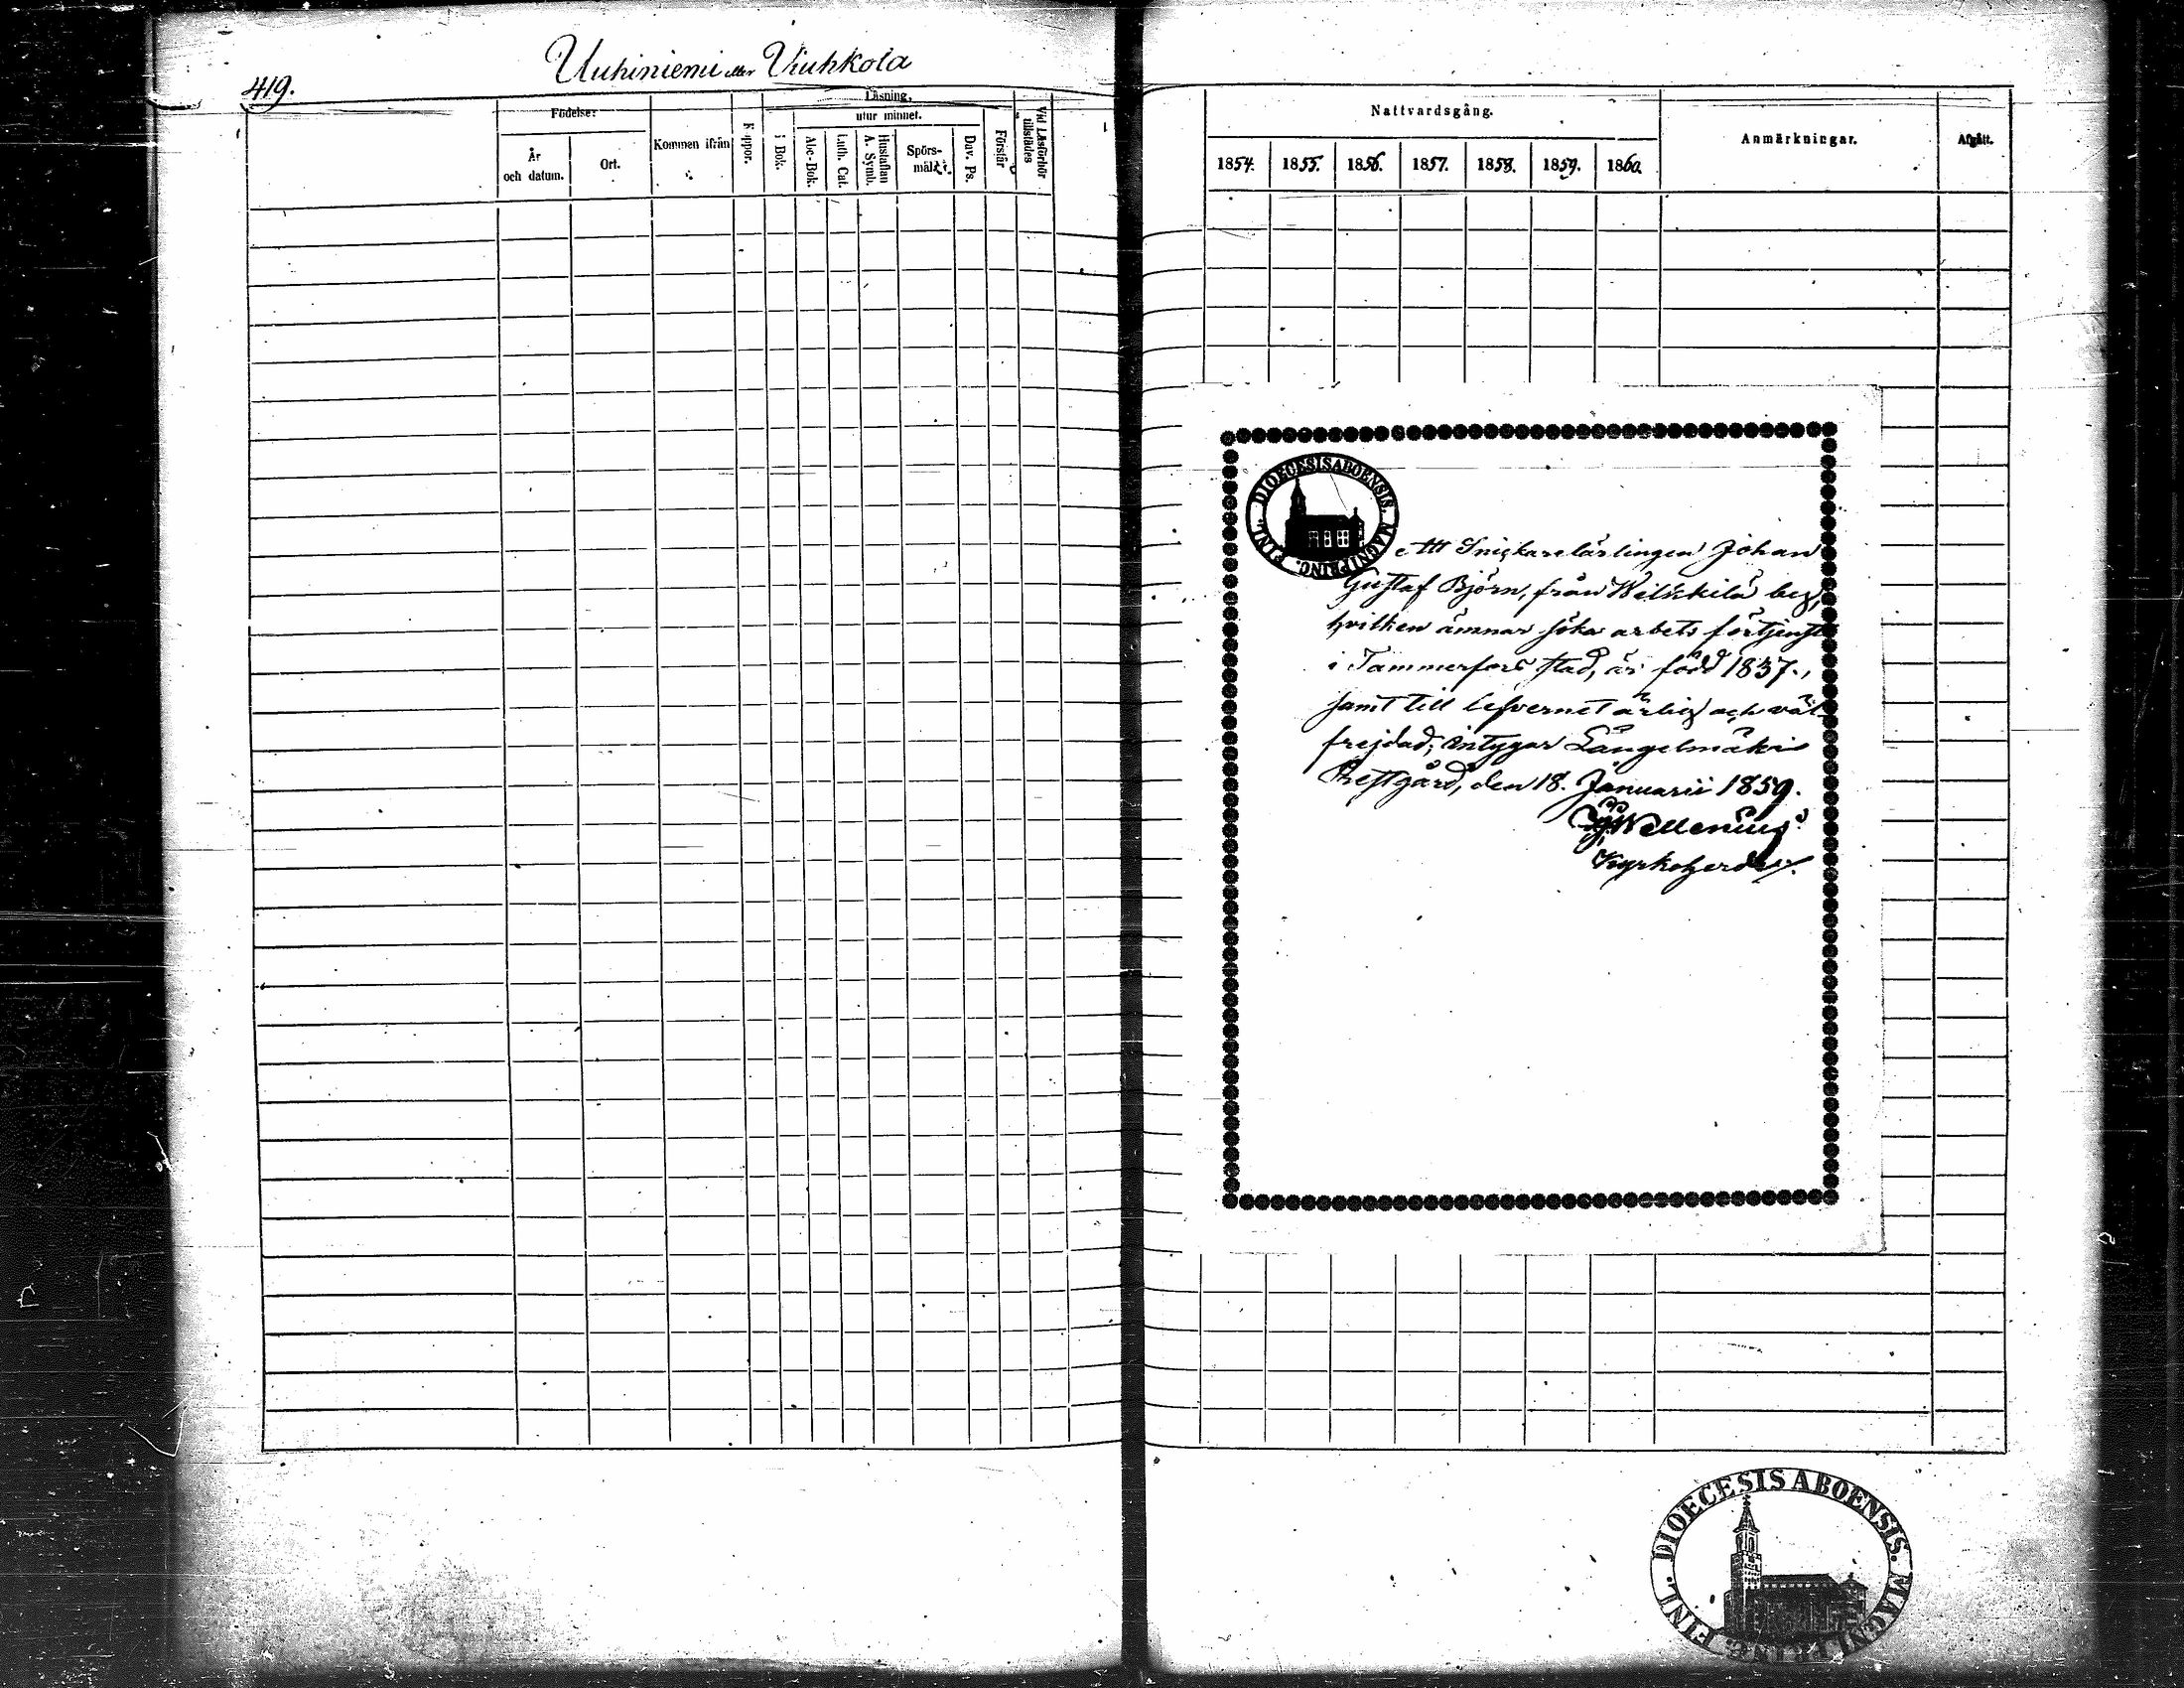 419.
Uuhiniemi eller Viuhkola
Födelse:
År och datum.
Ort.
Kommen ifrån
Koppor.
Läsning.
i Bok.
utur minnet.
Abc-Bok.
Luth. Cat.
Hustaflan A. Symb.
Spörsmål.
Dav. Ps.
Förstår
Vid Läsförhör tillstädes
Nattvardsgång.
1854. 1855. 1856. 1857. 1858. 1859. 1860.
Anmärkningar.
Afgått.
DIOECESIS ABOENSIS. MAGNI PRINC. FINL.
Att Snickarelärlingen Johan
Gustaf Björn, från Wilkkilä by,
hvilken ämnar söka arbets förtjenst
i Tammerfors stad, är född 1837.,
samt till lefvernet ärlig och väl
frejdad; intygar Längelmäki
Prestgård, den 18. Januarii 1859.
Wallenius
Kyrkoherde.
DIOECESIS ABOENSIS. MAGNI PRINC. FINL.